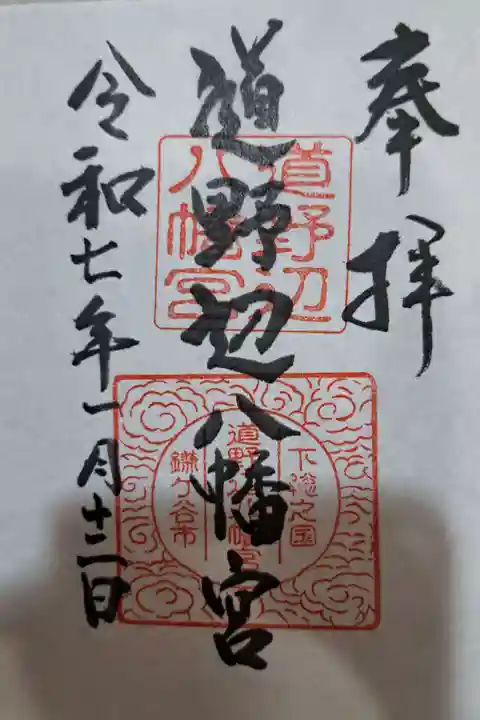 奉拝
道野辺八幡宮
令和七年一月十二日
道野辺
八幡宮
下総之国
道野辺八幡宮
鎌ヶ谷市